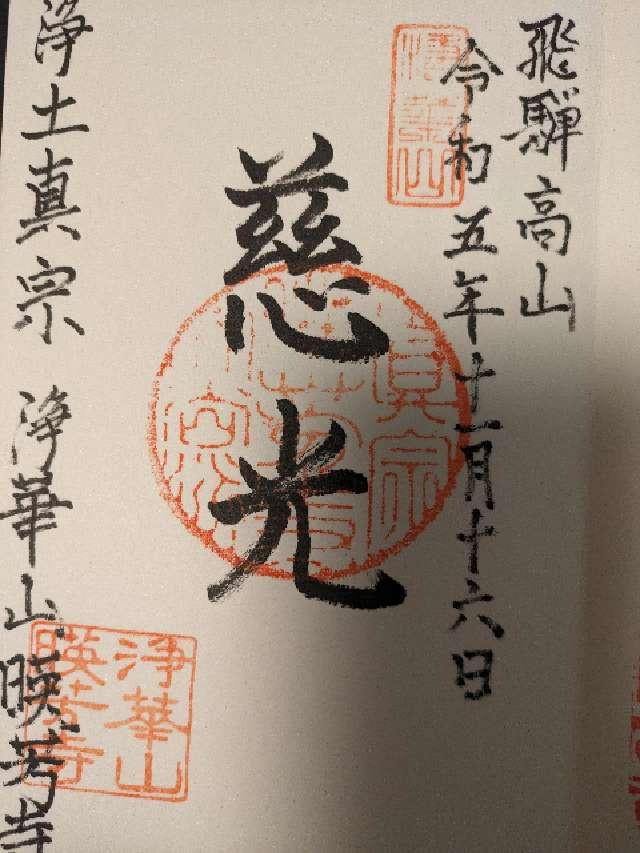 飛騨高山
令和五年十一月十六日
浄華山
慈光
真宗
浄土真宗 浄華山 暎芳寺
浄華山
暎芳寺